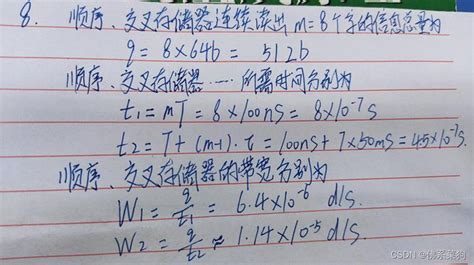 8. 顺序、交叉存储器连续读出 m=8个字的信息总量为
q = 8×64b = 512b
顺序、交叉存储器……所需时间分别为
t₁=mT=8×100ns=8×10⁻⁷s
t₂=T+(m-1)·τ=100ns+7×50ms=4.5×10⁻⁷s.
顺序、交叉存储器的带宽分别为
W₁=q/t₁=6.4×10⁻⁶ d/s.
W₂=q/t₂≈1.14×10⁻⁵ d/s.
CSDN @佛系菜狗